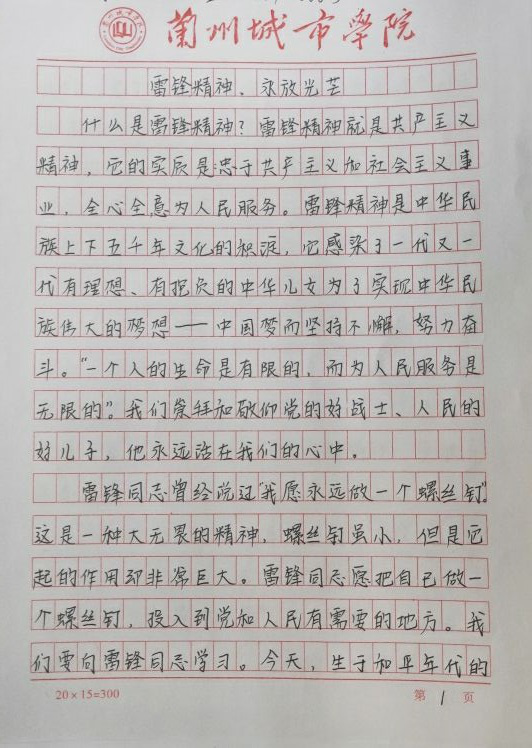 兰州城市学院
雷锋精神、永放光芒
什么是雷锋精神？雷锋精神就是共产主义
精神，它的实质是忠于共产主义和社会主义事
业，全心全意为人民服务。雷锋精神是中华民
族上下五千年文化的积淀，它感染了一代又一
代有理想、有抱负的中华儿女为了实现中华民
族伟大的梦想——中国梦而坚持不懈，努力奋
斗。“一个人的生命是有限的，而为人民服务是
无限的”。我们崇拜和敬仰党的好战士、人民的
好儿子，他永远活在我们的心中。
雷锋同志曾经说过“我愿永远做一个螺丝钉”
这是一种大无畏的精神，螺丝钉虽小，但是它
起的作用却非常巨大。雷锋同志愿把自己做一
个螺丝钉，投入到党和人民有需要的地方。我
们要向雷锋同志学习。今天，生于和平年代的
20×15=300
第 1 页